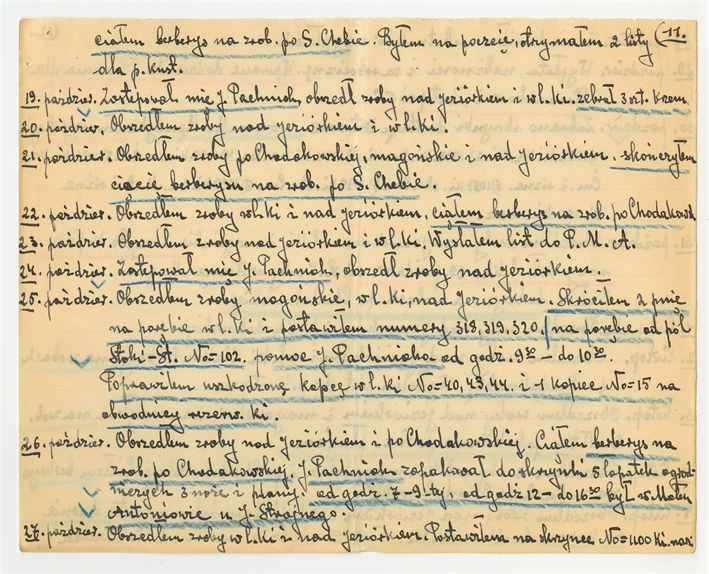 (11.
ciąłem berberys na zrob. po S. Chebie. Byłem na poczcie, otrzymałem 2 listy
dla p. Kust.
19. paździer. Zastępował mię J. Pachniak, obszedł zroby nad Jeziórkiem i wł. ki. zebrał 3 szt. krzem.
20. paździer. Obszedłem zroby nad Jeziórkiem i wł. ki.
21. paździer. Obszedłem zroby po Chodakowskiej, magońskie i nad Jeziórkiem. skończyłem
cięcie berberysu na zrob. po S. Chebie.
22. paździer. Obszedłem zroby wł. ki i nad Jeziórkiem, ciąłem berberys na zrob. po Chodakowsk
23. paździer. Obszedłem zroby nad Jeziórkiem i wł. ki, Wysłałem list do P. M. A.
24. paździer. Zastępował mię J. Pachniak, obszedł zroby nad Jeziórkiem.
25. paździer. Obszedłem zroby magońskie, wł. ki, nad Jeziórkiem. Skróciłem 2 pnie
na porębie wł. ki i postawiłem numery 318, 319, 320. na porębie od pól
Stoki-St. No=102. pomoc J. Pachniaka od godź. 9³⁰ – do 10³⁰.
Poprawiłem uszkodzone kopce wł. ki No=40, 43, 44. i 1 kopiec No=15 na
obwodnicy rezerw. ki.
26. paździer. Obszedłem zroby nad Jeziórkiem i po Chodakowskiej. Ciąłem berberys na
zrob. po Chodakowskiej. J. Pachniak zapakował do skrzynki 5 łopatek ogrod-
niczych 3 noże i plany. od godz. 7–9-tej, od godz 12– do 16³⁰ był w Małem
Antoniowie u J. Strojnego.
27. paździer. Obszedłem zroby wł. ki i nad Jeziórkiem. Postawiłem na skrzynce No=1100 Ki. nasi